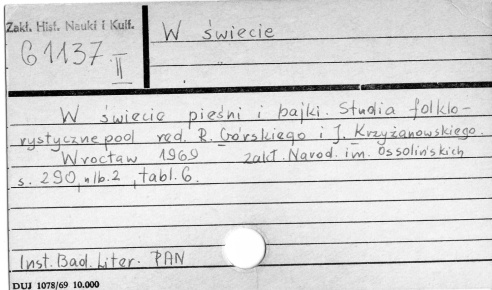 Zakł. Hist. Nauki i Kult.
W świecie
G 1137
II
W świecie pieśni i bajki. Studia folklo-
rystyczne pod red. R. Górskiego i J. Krzyżanowskiego.
Wrocław 1969 zakł. Narod. im. Ossolińskich
s. 290, nlb. 2, tabl. 6.
Inst. Bad. Liter. PAN
DUJ 1078/69 10.000